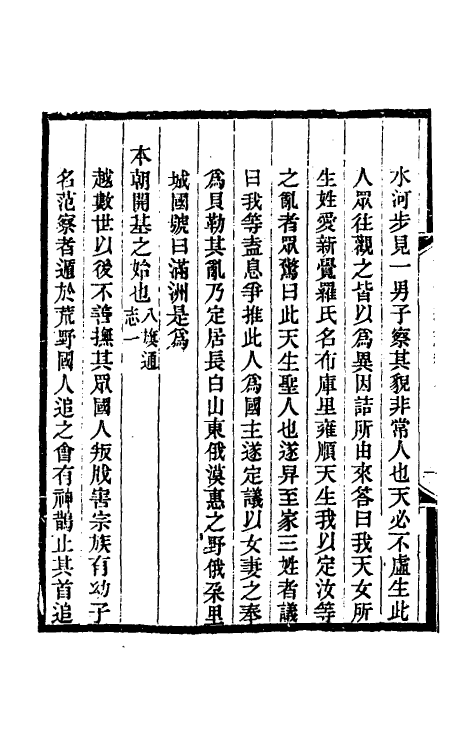 水河步見一男子察其貌非常人也天必不虛生此
人眾往觀之皆以爲異因詰所由來答曰我天女所
生姓愛新覺羅氏名布庫里雍順天生我以定汝等
之亂者眾驚曰此天生聖人也遂舁至家三姓者議
曰我等盍息爭推此人爲國主遂定議以女妻之奉
爲貝勒其亂乃定居長白山東俄漠惠之野俄朶里
城國號曰滿洲是爲
本朝開基之始也八旗通志一
越數世以後不善撫其眾國人叛戕害宗族有幼子
名范察者遁於荒野國人追之會有神鵲止其首追